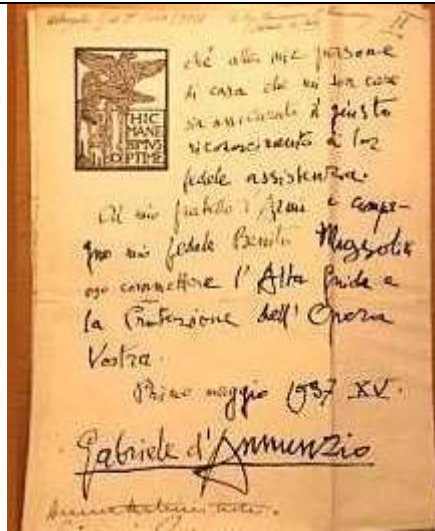 ché alle mie persone
di casa che mi son care
sia assicurato il giusto
HIC
MANE
BIMVS
OPTIME
riconoscimento a lor
fedele assistenza.
Al mio fratello d'Armi e compa-
gno mio fedele Benito Mussolini
oso commettere l'Alta Guida e
la Protezione dell'Opera
Vostra.
Primo maggio 1937 XV.
Gabriele d'Annunzio